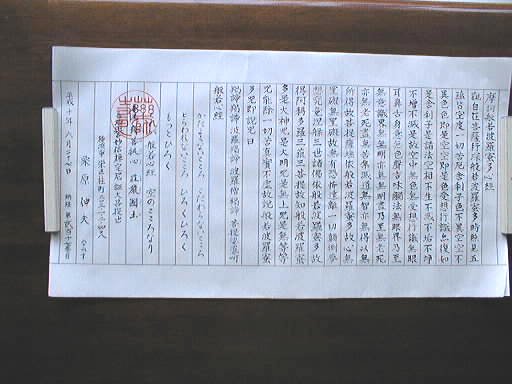 摩訶般若波羅蜜多心経
観自在菩薩行深般若波羅蜜多時照見五
蘊皆空度一切苦厄舎利子色不異空空不
異色色即是空空即是色受想行識亦復如
是舎利子是諸法空相不生不滅不垢不浄
不増不減是故空中無色無受想行識無眼
耳鼻舌身意無色声香味触法無眼界乃至
無意識界無無明亦無無明尽乃至無老死
亦無老死尽無苦集滅道無智亦無得以無
所得故菩提薩埵依般若波羅蜜多故心無
罣礙無罣礙故無有恐怖遠離一切顛倒夢
想究竟涅槃三世諸仏依般若波羅蜜多故
得阿耨多羅三藐三菩提故知般若波羅蜜
多是大神呪是大明呪是無上呪是無等等
呪能除一切苦真実不虚故説般若波羅蜜
多呪即説呪曰
羯諦羯諦 波羅羯諦 波羅僧羯諦 菩提薩婆訶
般若心経
かたよらないこころ こだわらないこころ
とらわれないこころ ひろくひろく
もっとひろく
般若心経 空のこころなり
平成十年 八月
栗原 伸夫